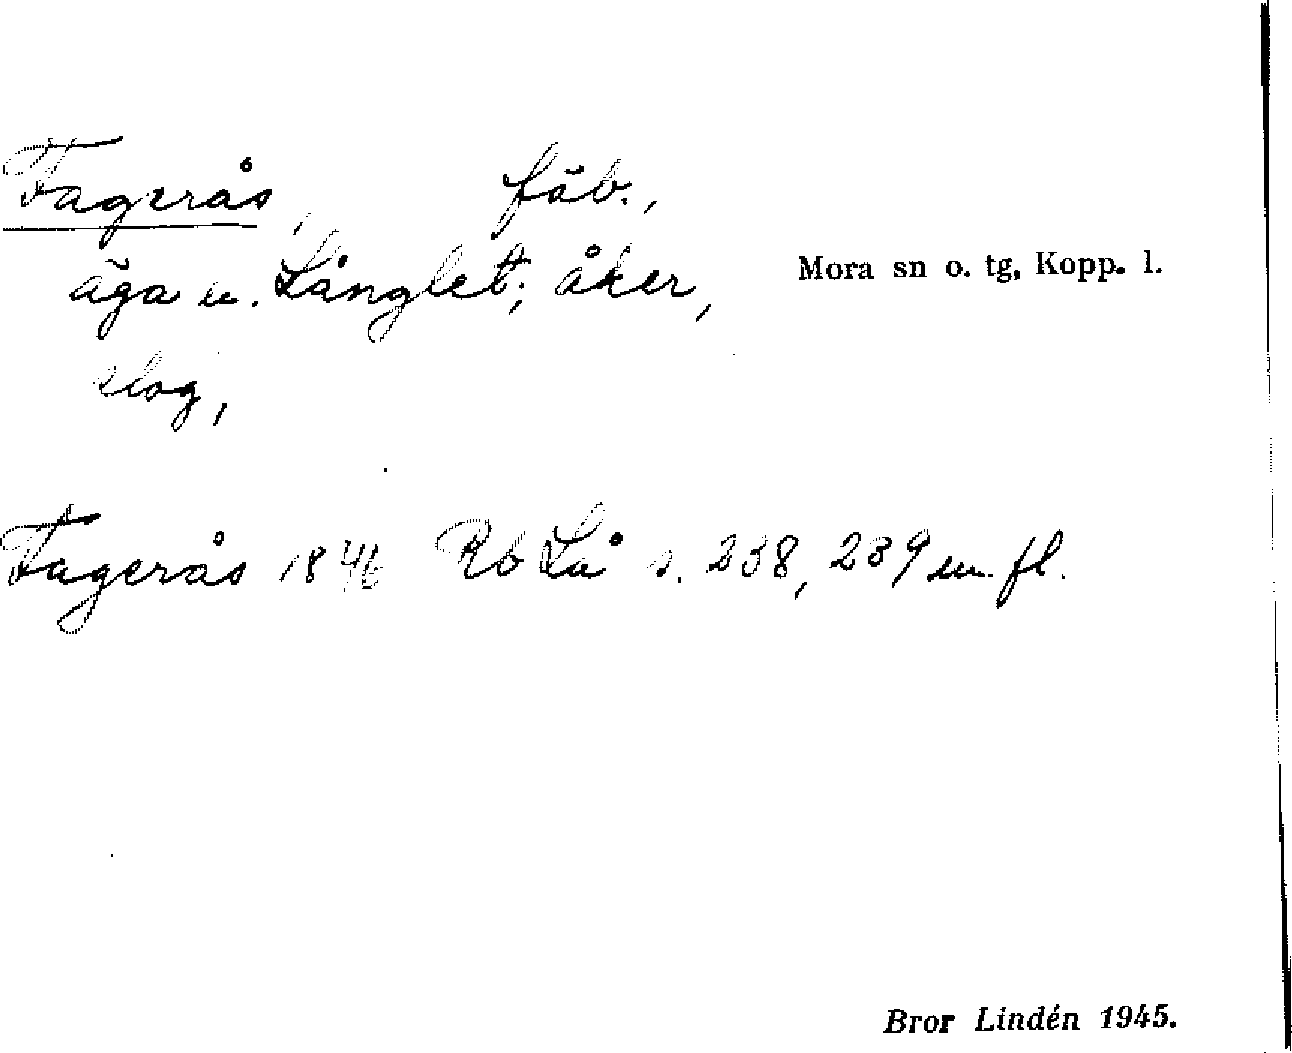 Fagerås, fäb.,
äga u. Långlet; åker,
Mora sn o. tg, Kopp. l.
slog,
Fagerås 1846 Rb Lå s. 238, 239 m. fl.
Bror Lindén 1945.